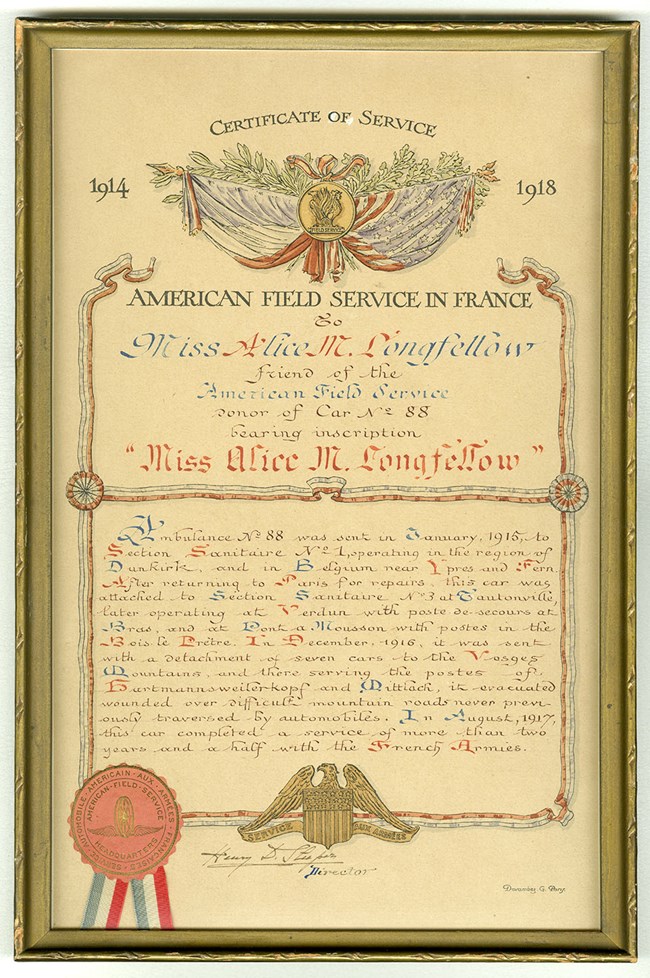 CERTIFICATE OF SERVICE
1914
1918
FIELD SERVICE
AMERICAN FIELD SERVICE IN FRANCE
To
Miss Alice M. Longfellow
friend of the
American Field Service
donor of Car No 88
bearing inscription
"Miss Alice M. Longfellow"
Ambulance No 88 was sent in January, 1915, to
Section Sanitaire No 1, operating in the region of
Dunkirk, and in Belgium near Ypres and Fern.
After returning to Paris for repairs, this car was
attached to Section Sanitaire No 3 at Tautonville,
later operating at Verdun with poste de secours at
Bras, and at Pont a Mousson with postes in the
Bois le Prêtre. In December, 1916, it was sent
with a detachment of seven cars to the Vosges
Mountains, and there serving the postes of
Hartmannsweilerkopf and Mittlach, it evacuated
wounded over difficult mountain roads never previ-
ously traversed by automobiles. In August, 1917,
this car completed a service of more than two
years and a half with the French Armies.
SERVICE AUTOMOBILE AMERICAIN AUX ARMÉES FRANÇAISES
AMERICAN FIELD SERVICE
HEADQUARTERS
SERVICE AUX ARMÉES
Henry D. Sleeper
Director